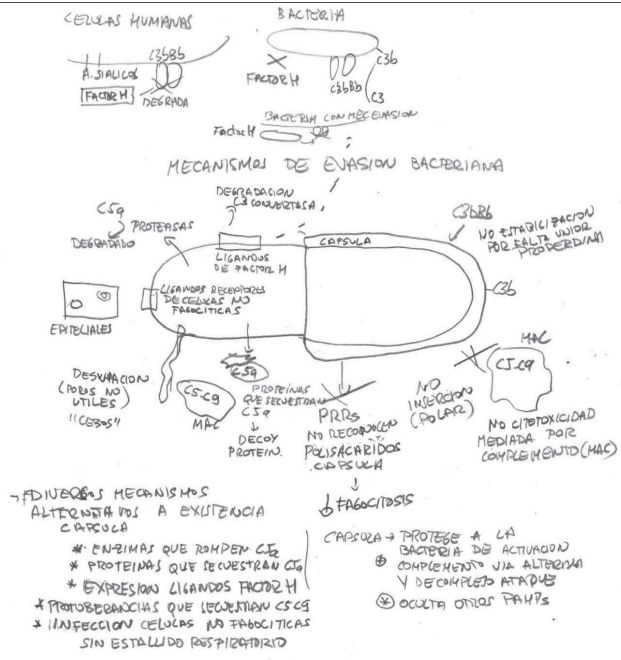 CELULAS HUMANAS
C3bBb
A. SIALICOS
FACTOR H
DEGRADA
BACTERIA
FACTOR H
C3bBb
C3b
C3
BACTERIA CON MEC EVASION
Factor H
MECANISMOS DE EVASION BACTERIANA
DEGRADACION
C3 CONVERTASA
C5a
PROTEASAS
DEGRADADO
LIGANDOS
DE FACTOR H
CAPSULA
C3bBb
NO ESTABILIZACION
POR FALTA UNION
PROPERDINA
C3b
LIGANDOS RECEPTORES
DE CELULAS NO
FAGOCITICAS
EPITELIALES
DESVIACION
(POROS NO
UTILES)
"CEBOS"
C5-C9
MAC
C5a
PROTEINAS
QUE SECUESTRAN
C5a
DECOY
PROTEIN.
PRRs
NO RECONOCEN
POLISACARIDOS
CAPSULA
FAGOCITOSIS
NO
INSERCION
(POLAR)
MAC
C5-C9
NO CITOTOXICIDAD
MEDIADA POR
COMPLEMENTO (MAC)
→ DIVERSOS MECANISMOS
ALTERNATIVOS A EXISTENCIA
CAPSULA
* ENZIMAS QUE ROMPEN C5a
* PROTEINAS QUE SECUESTRAN C5a
* EXPRESION LIGANDOS FACTOR H
* PROTUBERANCIAS QUE SECUESTRAN C5C9
* INFECCION CELULAS NO FAGOCITICAS
SIN ESTALLIDO RESPIRATORIO
CAPSULA → PROTEGE A LA
BACTERIA DE ACTIVACION
COMPLEMENTO VIA ALTERNA
Y DE COMPLEJO ATAQUE
* OCULTA OTROS PAMPs